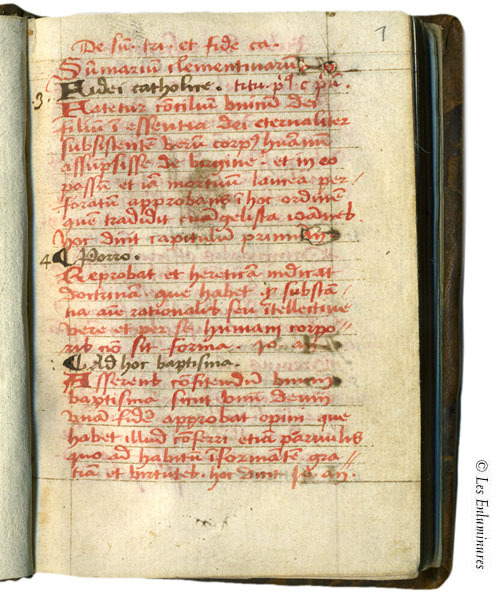 De su. tri. et fide ca.
1
Sumariū clementinarū
.3. Fidei catholice. titu. p'. c. pu.
Fatetur cōcilium vnicum dei
filiū ī essentia dei eternaliter
subsistente verū corpꝰ humanū
assupsisse de virgine. et in eo
passū et iā mortuum lancea per-
foratum approbans ī hoc ordinem
quē tradidit euāgelista ioānes
hoc dicit capitulum primum
4 Porro.
Reprobat et hereticā iudicat
doctrinam que habet ꝙ substā-
tia aīe rationalis seu ītellectiue
vere et per se humani corpo-
ris nō sit forma. Jo. an.
Ad hoc baptisma.
Asserens cōfitendū vnicū
baptisma sicut vnū deum
vnā fidē approbat opini que
habet illud cōferri etiā paruulis
quo ad habitū īformatē gra-
tiam et virtutes. hoc dicit Jo. an.
© Les Enluminures